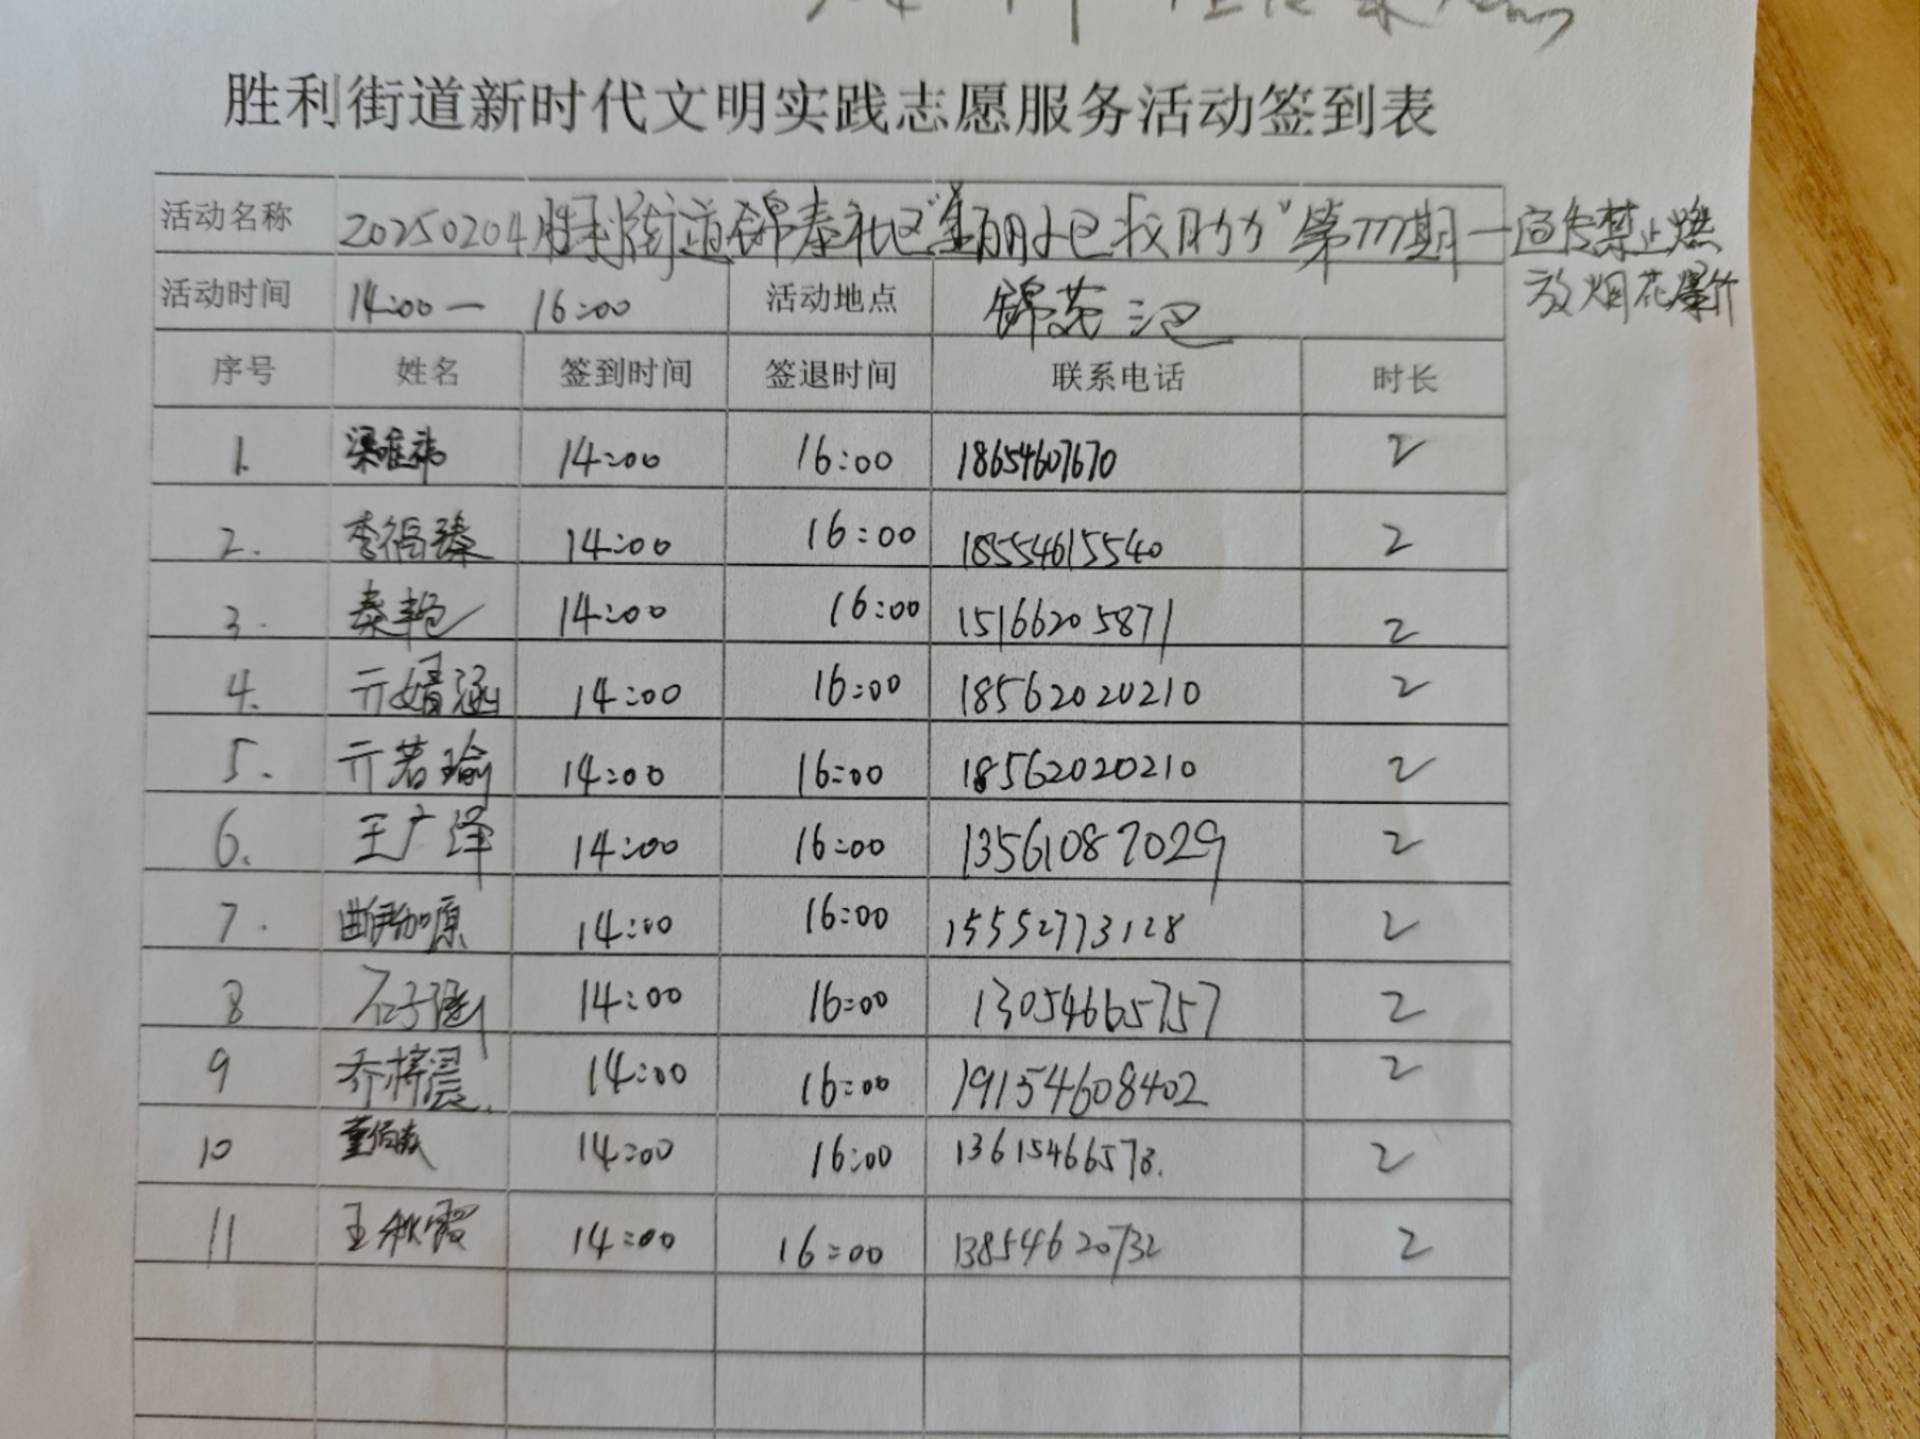 胜利街道新时代文明实践志愿服务活动签到表
活动名称 20250204胜利街道锦泰社区"美丽小区我助力"第777期—宣传禁止燃
放烟花爆竹
活动时间 14:00— 16:00 活动地点 锦苑三区
序号 姓名 签到时间 签退时间 联系电话 时长
1. 梁唯祎 14:00 16:00 18654607670 2
2. 李徭臻 14:00 16:00 18554615540 2
3. 秦艳 14:00 16:00 15166205871 2
4. 亓婧涵 14:00 16:00 18562020210 2
5. 亓若瑜 14:00 16:00 18562020210 2
6. 王广泽 14:00 16:00 13561087029 2
7. 曲伊加原 14:00 16:00 15552773128 2
8 石子 14:00 16:00 13054665757 2
9 乔梓晨 14:00 16:00 19154608402 2
10 董 14:00 16:00 13615466578. 2
11 王秋霞 14:00 16:00 13854620732 2